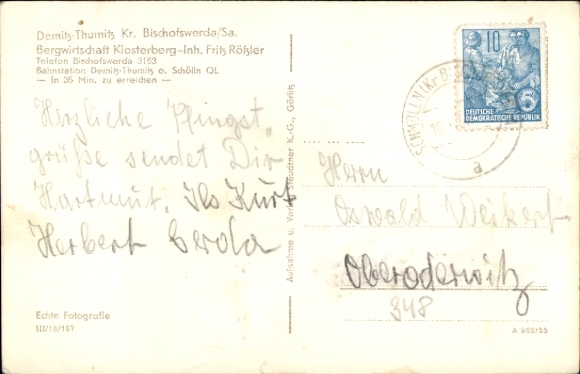 Demitz-Thumitz Kr. Bischofswerda/Sa.
Bergwirtschaft Klosterberg-Inh. Fritz Rößler
Telefon Bischofswerda 3163
Bahnstation Demitz-Thumitz o. Schölln OL
— In 35 Min. zu erreichen —
Herzliche Pfingst-
grüße sendet Dir
Hartmut. Ils Kurt
Herbert Gerda
Echte Fotografie
III/18/197
Aufnahme u. Verlag Steudtner K.-G., Görlitz
10
DEUTSCHE
DEMOKRATISCHE REPUBLIK
5
SCHMÖLLN (Kr B
10
a
Herrn
Oswald Weikert
Oberoderwitz
348
A 962/55